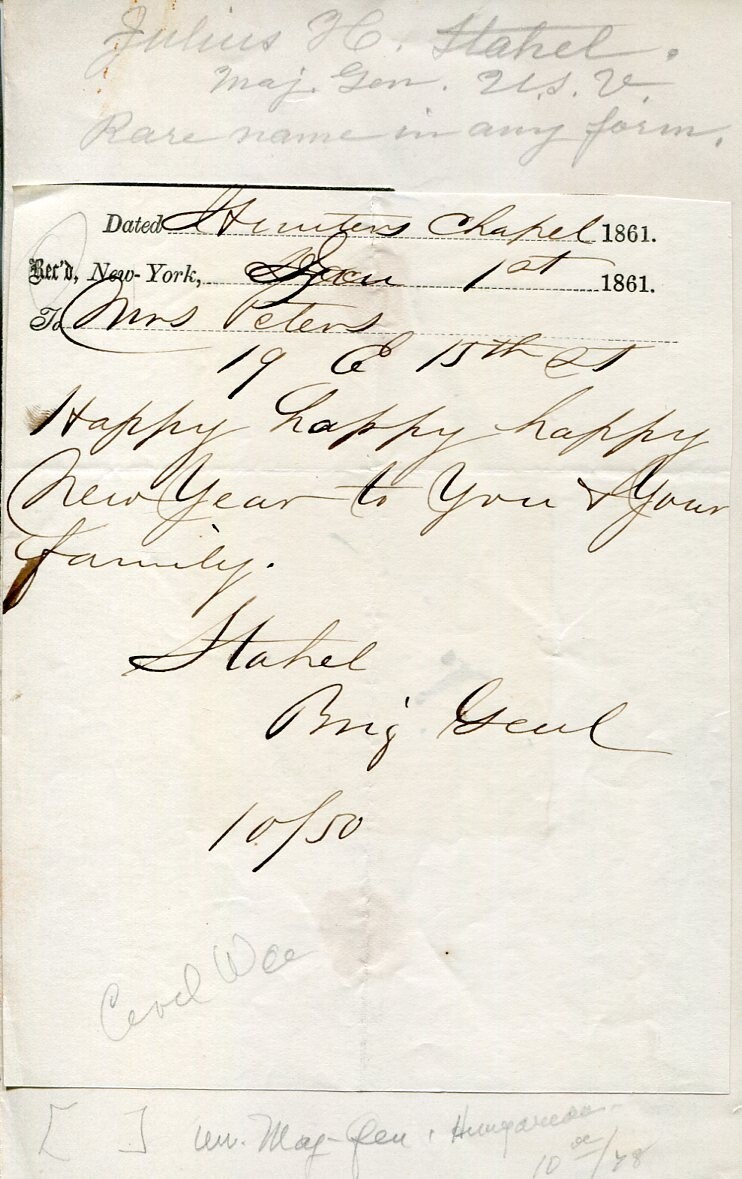 Julius H. Stahel.
Maj. Gen. U.S.V.
Rare name in any form.
Dated Hunters Chapel 1861.
Rec'd, New-York, Jan 1st 1861.
To Mrs Peters
19 E 15th St
Happy happy happy
New Year to You & Your
family.
Stahel
Brig Genl
10/50
Civil War
[ ] Un. Maj-Gen. Hungarian
10 /78